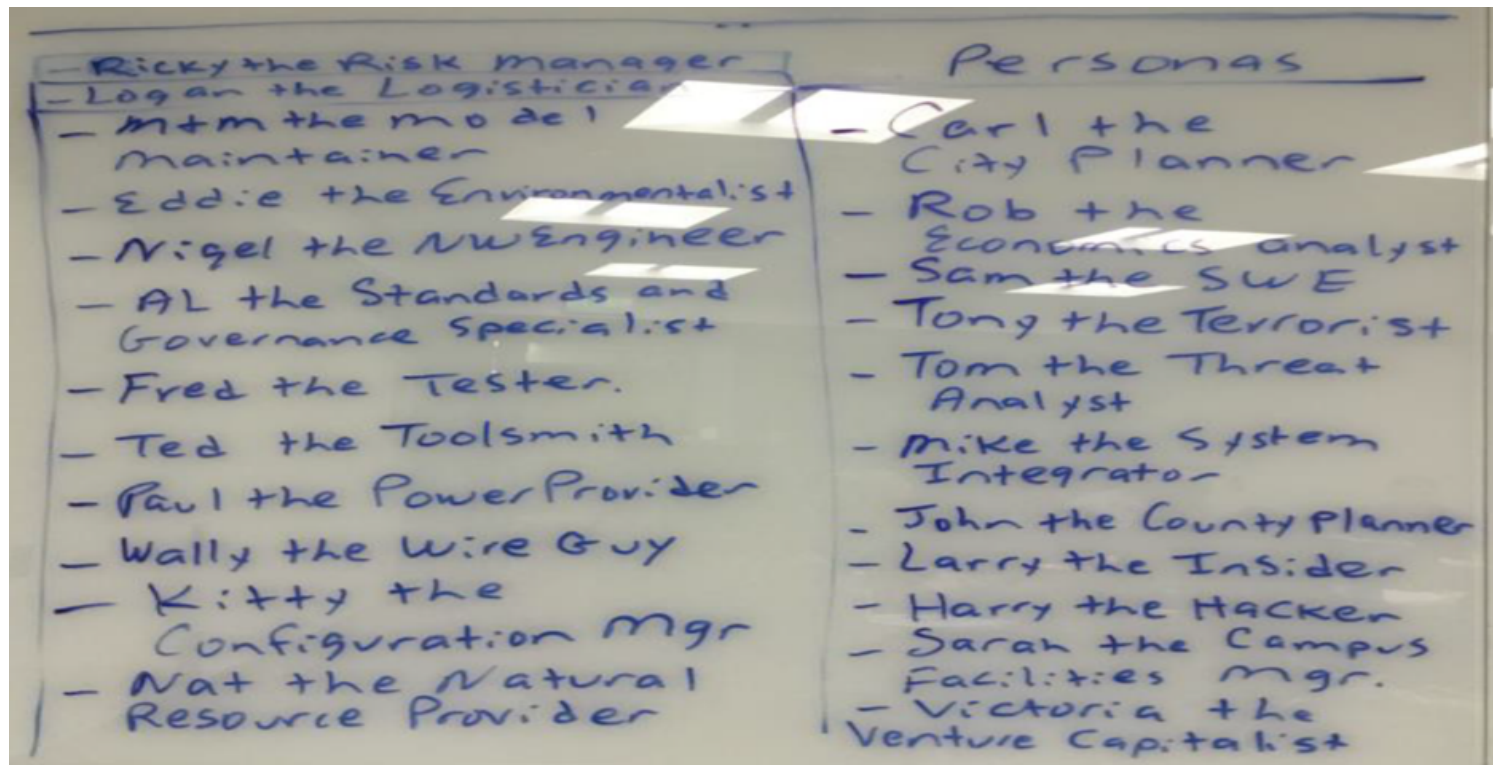 - Ricky the Risk Manager
- Logan the Logistician
- MtM the model
maintainer
- Eddie the Environmentalist
- Nigel the NW Engineer
- AL the Standards and
Governance Specialist
- Fred the Tester.
- Ted the Toolsmith
- Paul the Power Provider
- Wally the Wire Guy
- Kitty the
Configuration Mgr
- Nat the Natural
Resource Provider
Personas
- Carl the
City Planner
- Rob the
Economics analyst
- Sam the SWE
- Tony the Terrorist
- Tom the Threat
Analyst
- Mike the System
Integrator
- John the County Planner
- Larry the Insider
- Harry the Hacker
- Sarah the Campus
Facilities Mgr.
- Victoria the
Venture Capitalist